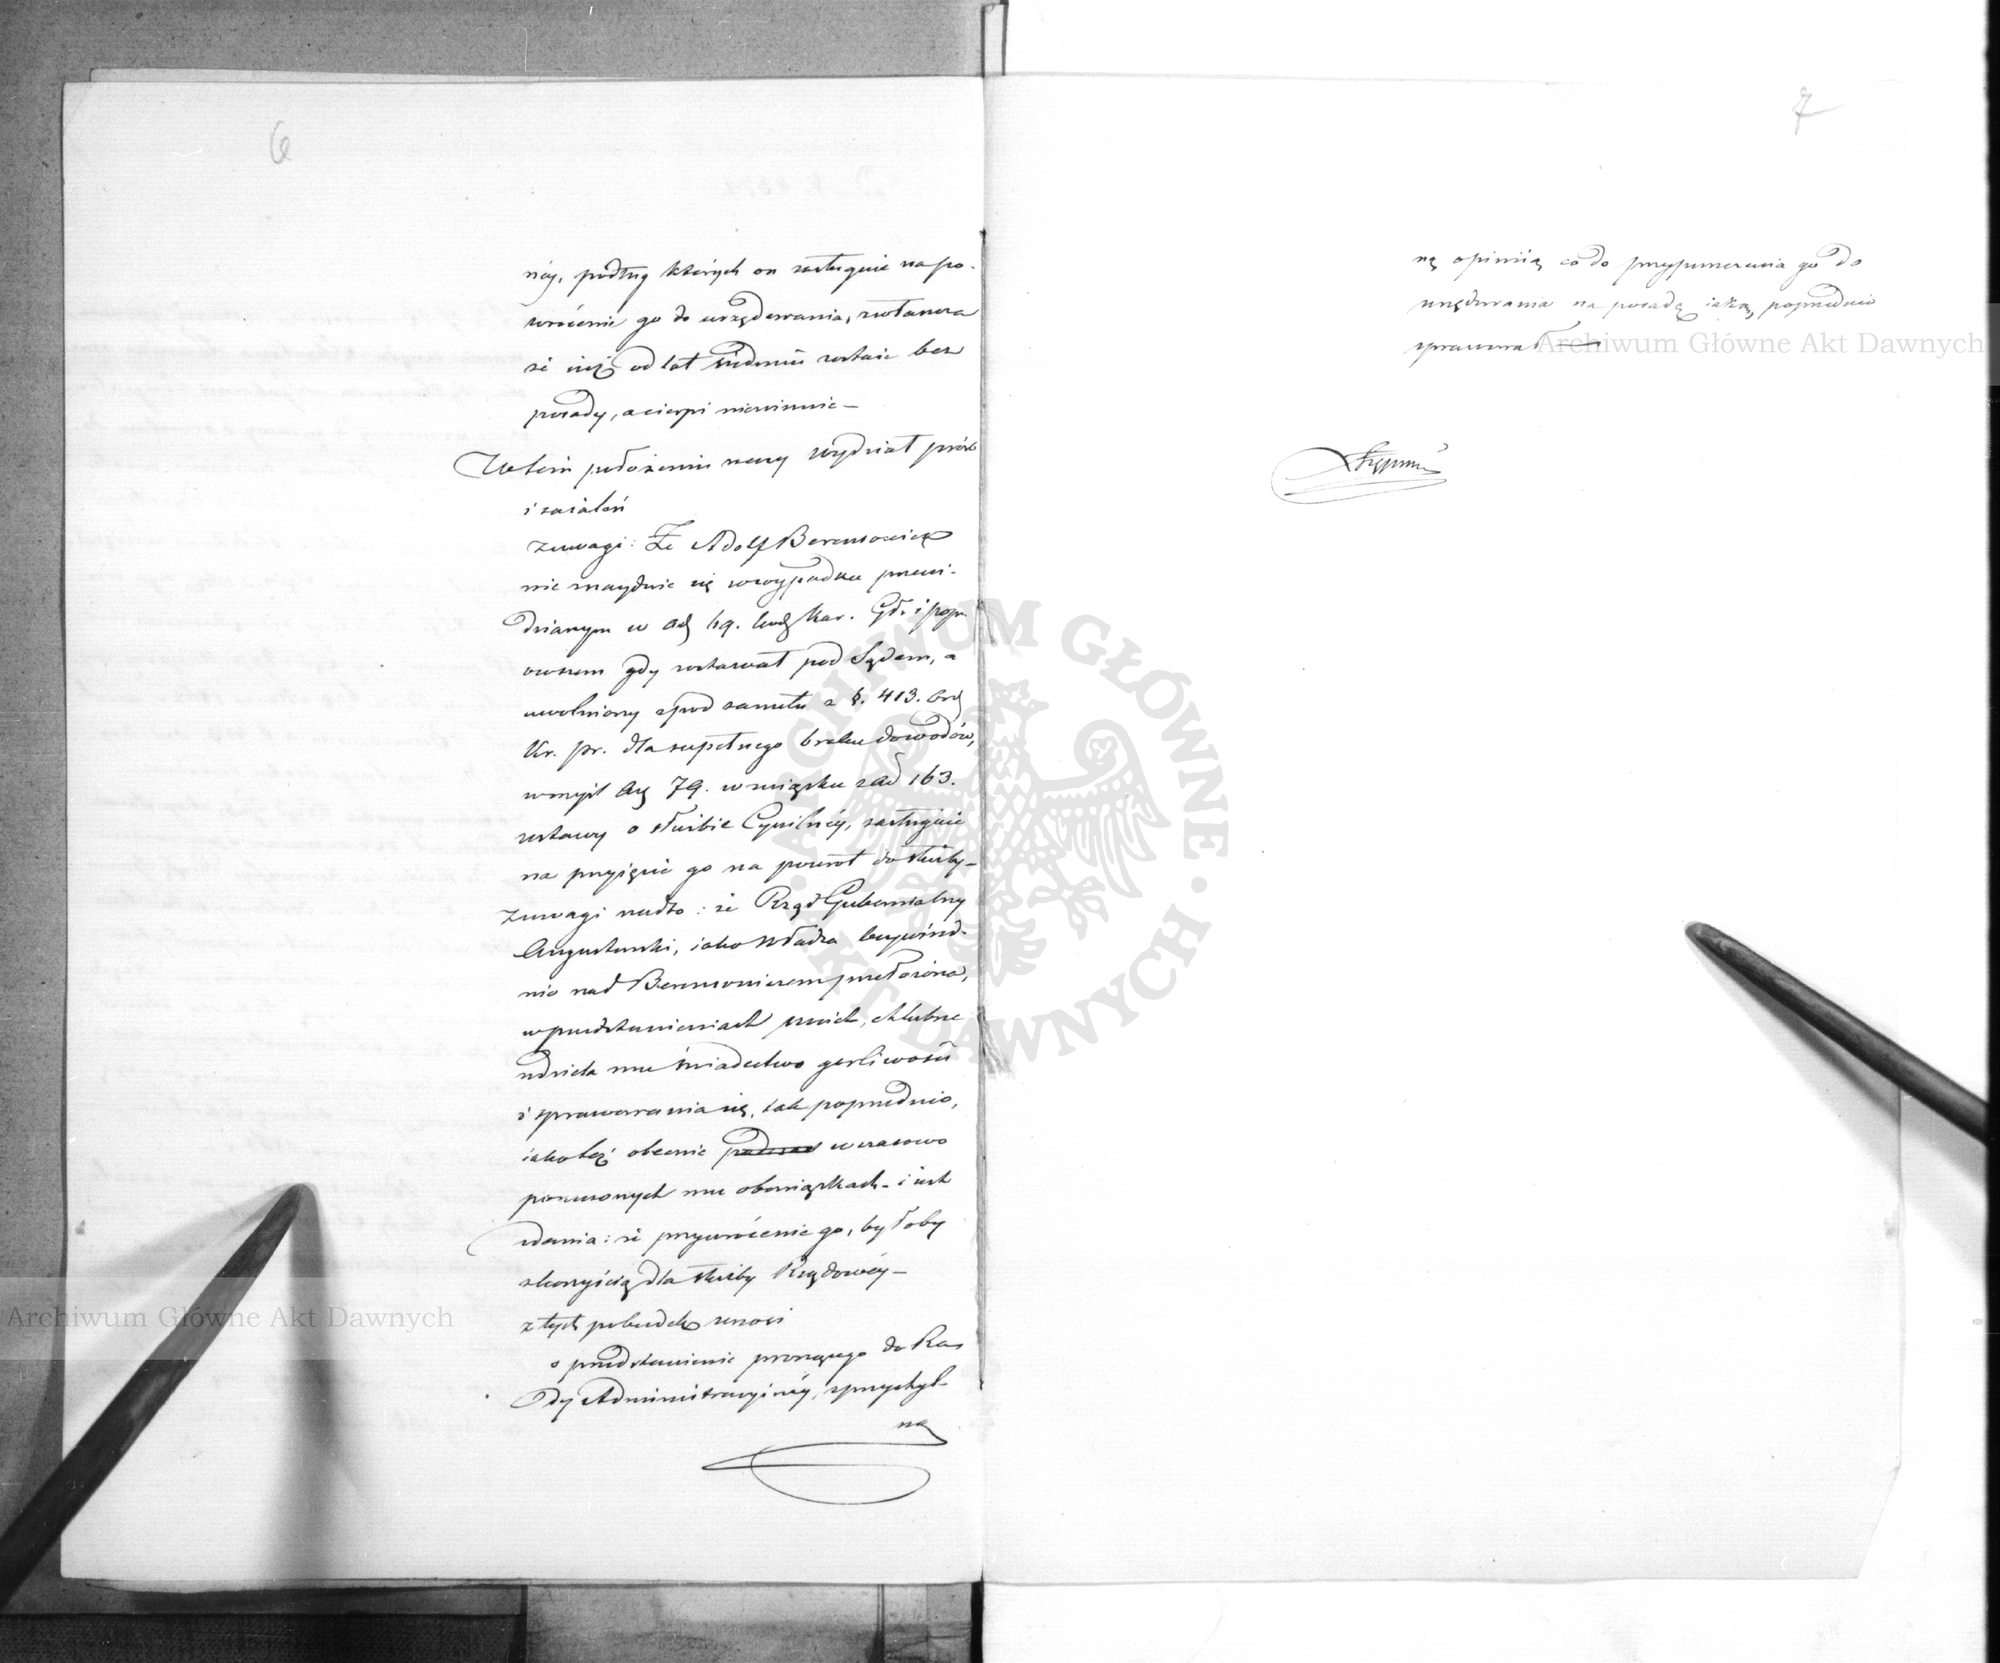 6
néy, podług których on zasługuie na po-
wrócenie go do urzędowania, zwłaszcza
że iuż od lat siedmiu zostaie bez
posady, a cierpi niewinnie –
W tém położeniu rzeczy Wydział próśb
i zażaleń
z uwagi: Że Adolf Berensowicz
nie znayduie się w wypadku przewi-
dzianym w art 69. Kod. Kar. Gł. i popr.
owszem gdy zostawał pod Sądem, a
uwolniony z pod zarzutu z §. 413. Ord
Kr. pr. dla zupełnego braku dowodów,
w myśl art 79. w związku z art 163.
ustawy o służbie Cywilnéy, zasługuie
na przyięcie go na powrót do służby –
z uwagi nadto: że Rząd Gubernialny
Augustowski, iako Władza bezpośred-
nio nad Berensowiczem przełożona,
w przedstawieniach swoich, chlubne
udziela mu świadectwo gorliwości
i sprawowania się, tak poprzednio,
iako też obecnie w czasowo
poruczonych mu obowiązkach – i iest
zdania: że przywrócenie go, byłoby
z korzyścią dla służby Rządowéy –
z tych pobudek wnosi
o przedstawienie proszącego do Ra-
dy Administracyinéy, z przychyl-
ną
7
ną opinią co do przywrócenia go do
urzędowania na posadę iaką poprzednio
sprawował
Archiwum Główne Akt Dawnych
Archiwum Główne Akt Dawnych
ARCHIWUM GŁÓWNE AKT DAWNYCH